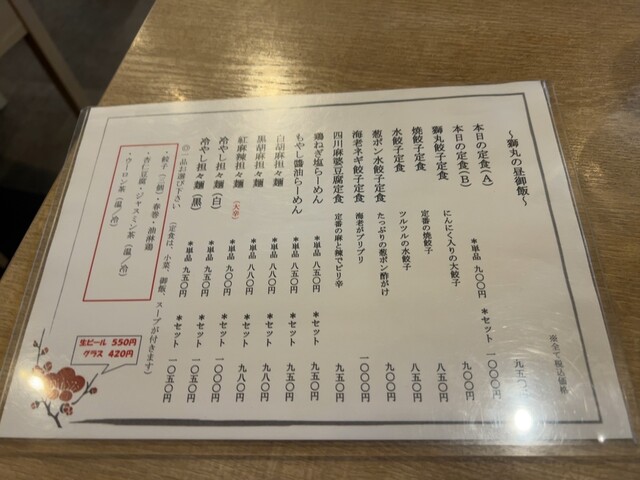 ～獅丸の昼御飯～
※全て税込価格
本日の定食(A) 九五〇円
本日の定食(B) *単品 九〇〇円 *セット 一〇〇〇円
獅丸餃子定食 にんにく入りの大餃子 九〇〇円
焼餃子定食 定番の焼餃子 八五〇円
水餃子定食 ツルツルの水餃子 八五〇円
葱ポン水餃子定食 たっぷりの葱ポン酢がけ 九〇〇円
海老ネギ餃子定食 海老がプリプリ 一〇〇〇円
四川麻婆豆腐定食 定番の麻と辣でピリ辛 九五〇円
鶏ねぎ塩らーめん *単品 八五〇円 *セット 九五〇円
もやし醬油らーめん *単品 八五〇円 *セット 九五〇円
白胡麻担々麺 *単品 八八〇円 *セット 九八〇円
黒胡麻担々麺 *単品 八八〇円 *セット 九八〇円
紅麻辣担々麺 (大辛) *単品 九〇〇円 *セット 一〇〇〇円
冷やし担々麺(白) *単品 九五〇円 *セット 一〇五〇円
冷やし担々麺(黒) *単品 九五〇円 *セット 一〇五〇円
◎一品お選び下さい (定食は、小菜、御飯、スープが付きます)
・餃子(三個)・春巻・油淋鶏
・杏仁豆腐・ジャスミン茶(温/冷)
・ウーロン茶(温/冷)
生ビール 550円
グラス 420円